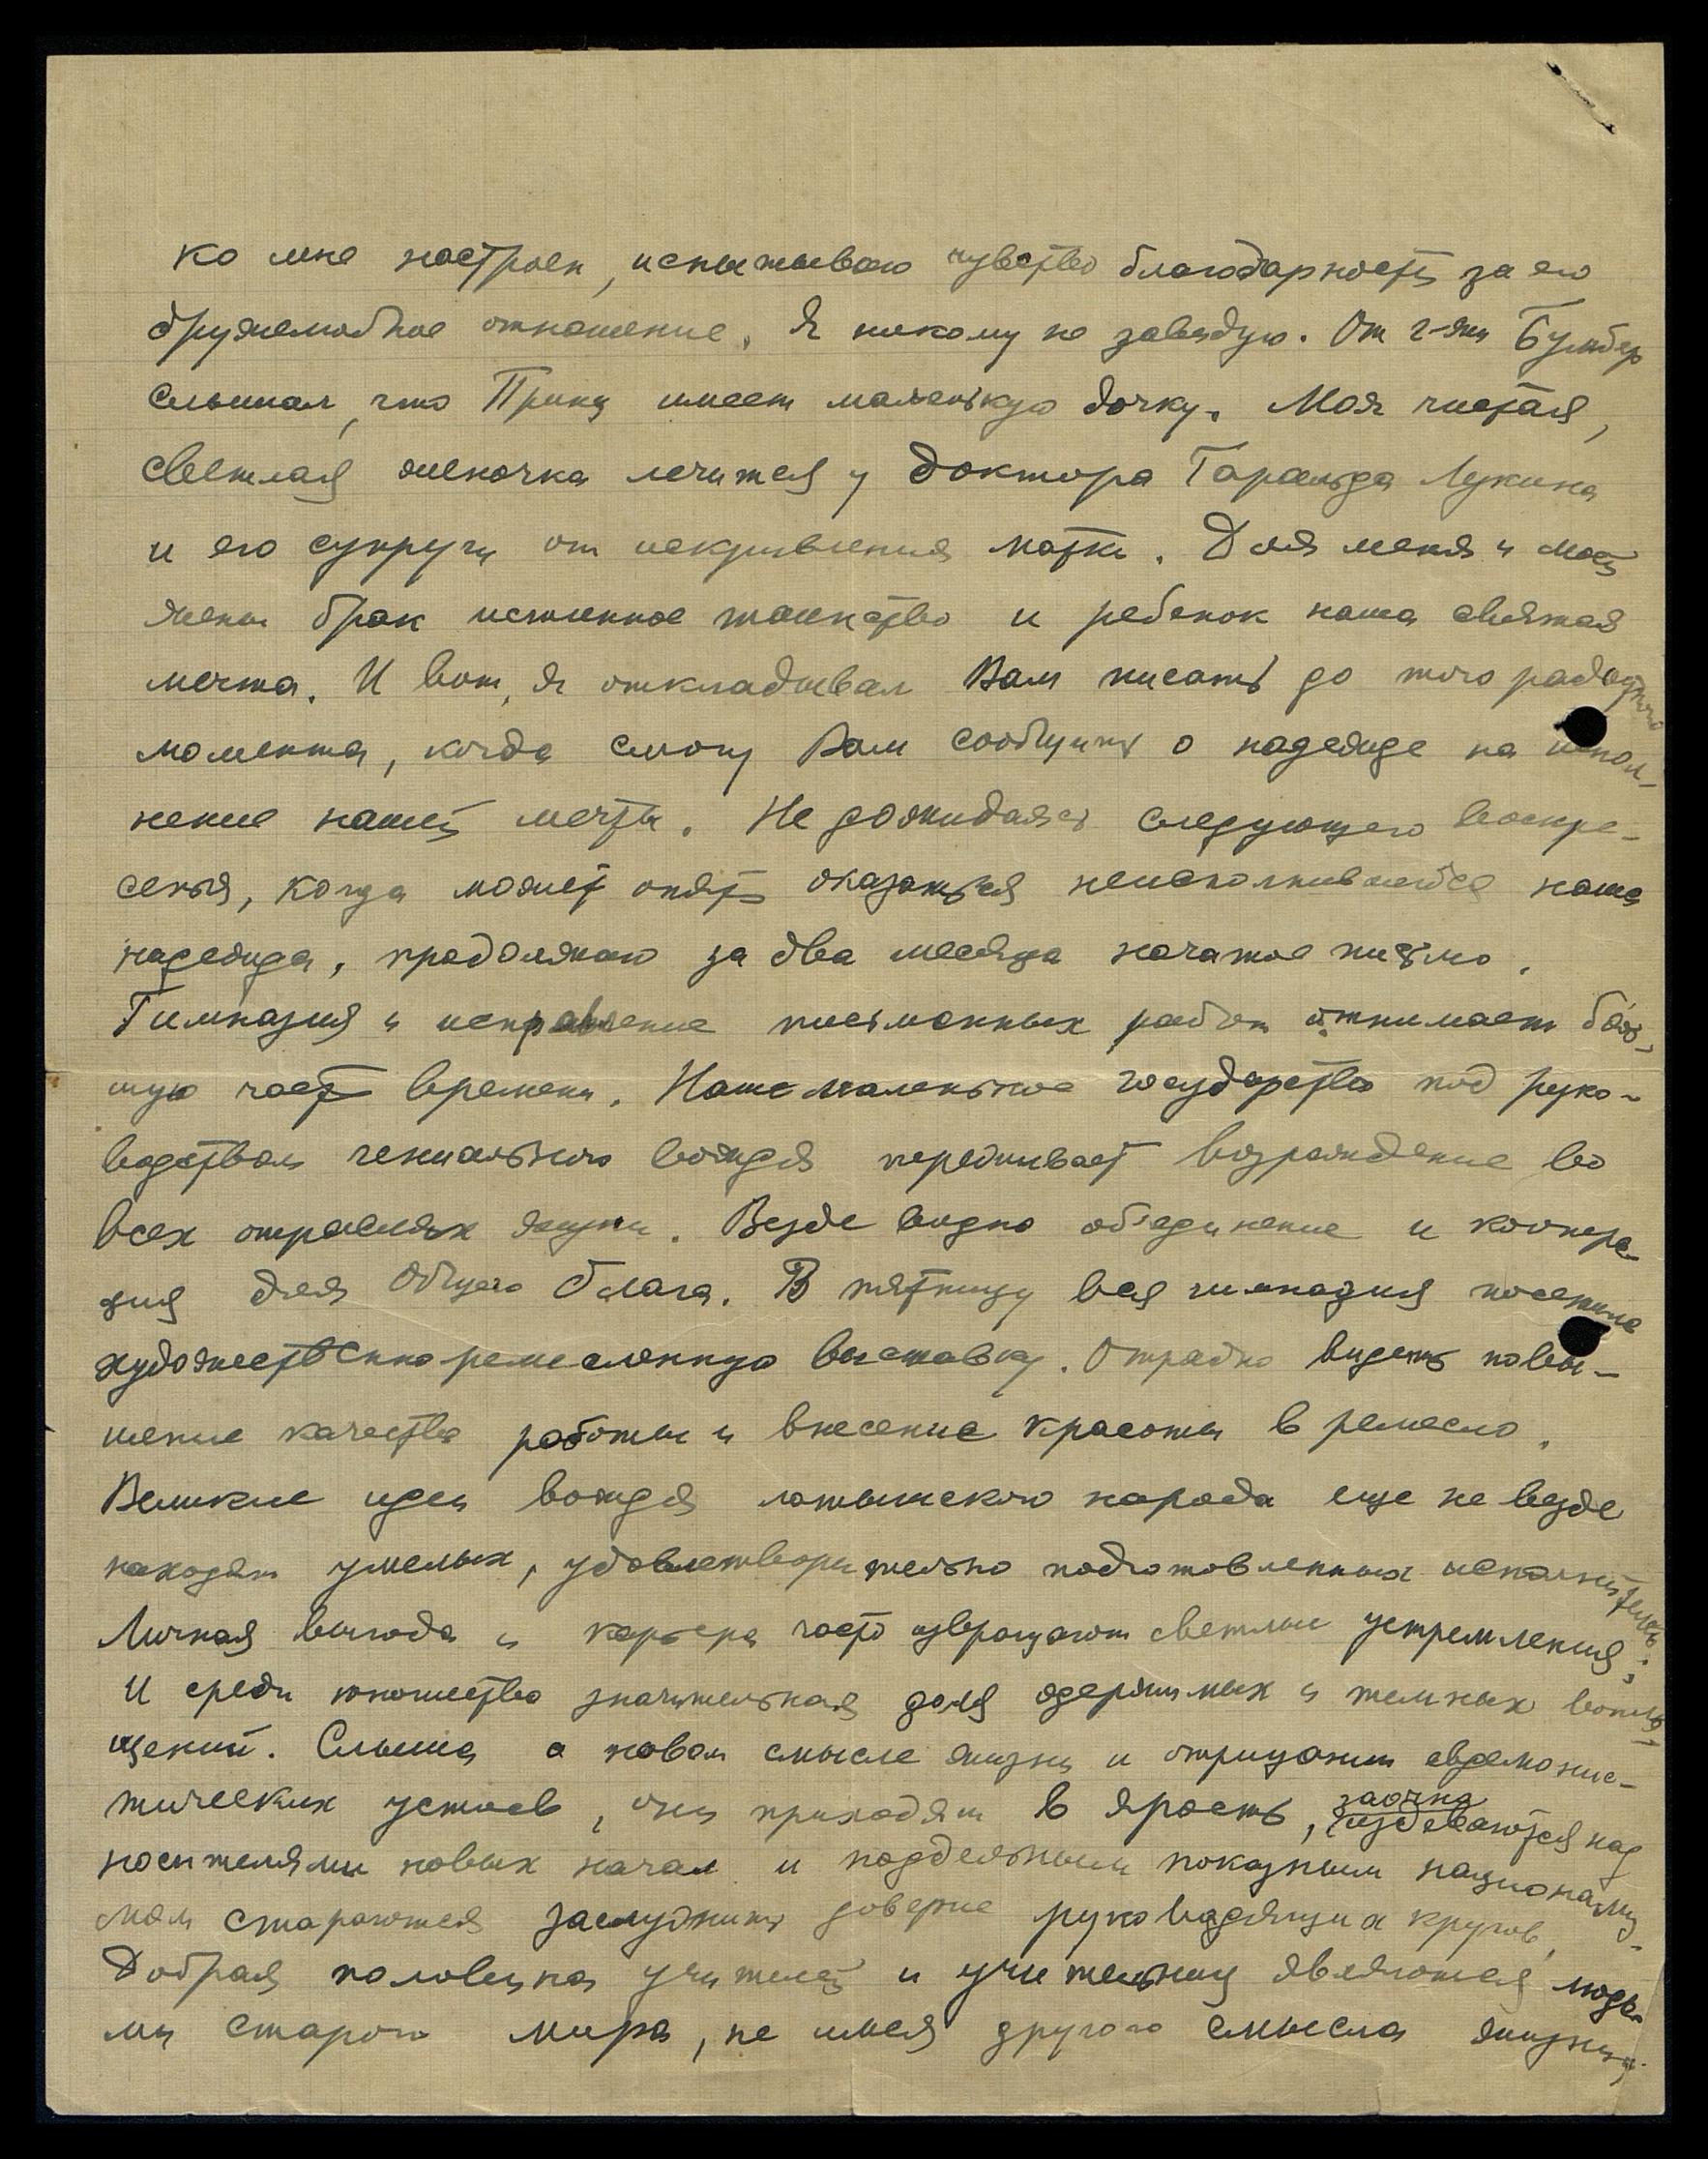 ко мне настроен, испытываю чувство благодарности за его
дружелюбное отношение. Я никому не завидую. От г-жи
слышал, что Принц имеет маленькую дочку. Моя чистая,
светлая женочка лечится у доктора Гаральда Лукина
и его супруги от искривления матки. Для меня и моей
жены брак истинное таинство и ребенок наша святая
мечта. И вот, я откладывал Вам писать до того радостного
момента, когда смогу Вам сообщить о надежде на испол-
нение нашей мечты. Не дожидаясь следующего воскре-
сенья, когда может опять оказаться неисполнившейся наша
надежда, продолжаю за два месяца начатое письмо.
Гимназия и исправление письменных работ отнимает боль-
шую часть времени. Наше маленькое государство под руко-
водством гениального вождя переживает возрождение во
всех отраслях жизни. Везде видно об'единение и коопера-
ция для Общего Блага. В пятницу вся гимназия посетила
художественно ремесленную выставку. Отрадно видеть повы-
шение качества работы и внесение красоты в ремесло.
Великие идеи вождя латышского народа еще не везде
находят умелых, удовлетворительно подготовленных исполнителей.
Личная выгода и карьера часто извращают светлые устремления;
И среди юношества значительная доля одержимых и темных вопло-
щений. Слыша о новом смысле жизни и отрицании евдемонис-
тических устоев, они приходят в ярость, заочно издеваются над
носителями новых начал и поддельным показным национализ-
мом стараются заслужить доверие руководящих кругов.
Добрая половина учителей и учительниц являются людь-
ми старого мира, не имея другого смысла жизни,